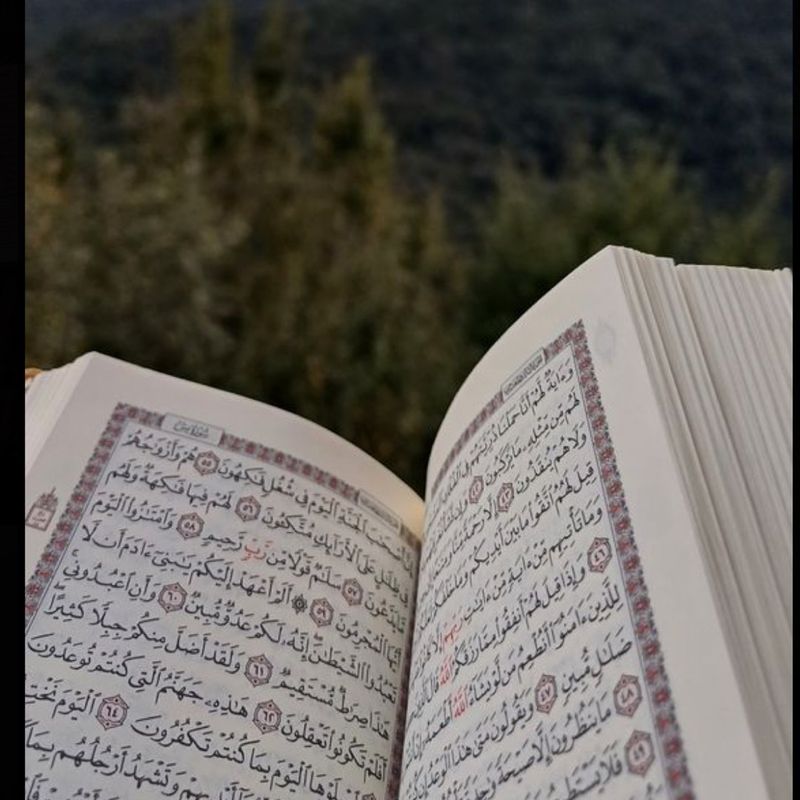 وَءَايَةٌ لَّهُمْ أَنَّا حَمَلْنَا ذُرِّيَّتَهُمْ فِي
لَهُم مِّن مِّثْلِهِۦ مَا يَرْكَبُونَ ٤٢ وَإِن
وَلَا هُمْ يُنقَذُونَ ٤٣ إِلَّا رَحْمَةً مِّنَّا
قِيلَ لَهُمُ ٱتَّقُوا۟ مَا بَيْنَ أَيْدِيكُمْ وَمَا خَلْفَكُمْ
وَمَا تَأْتِيهِم مِّنْ ءَايَةٍ مِّنْ ءَايَـٰتِ رَبِّهِمْ إِلَّا
٤٦ وَإِذَا قِيلَ لَهُمْ أَنفِقُوا۟ مِمَّا رَزَقَكُمُ ٱللَّهُ قَالَ
لِلَّذِينَ ءَامَنُوٓا۟ أَنُطْعِمُ مَن لَّوْ يَشَآءُ ٱللَّهُ أَطْعَمَهُۥٓ إِنْ
ضَلَـٰلٍ مُّبِينٍ ٤٧ وَيَقُولُونَ مَتَىٰ هَـٰذَا ٱلْوَعْدُ إِن
٤٨ مَا يَنظُرُونَ إِلَّا صَيْحَةً وَٰحِدَةً
٤٩ فَلَا يَسْتَطِيعُونَ
سُورَةُ يسٓ
إِنَّ أَصْحَـٰبَ ٱلْجَنَّةِ ٱلْيَوْمَ فِى شُغُلٍ فَـٰكِهُونَ ٥٥ هُمْ وَأَزْوَٰجُهُمْ
فِى ظِلَـٰلٍ عَلَى ٱلْأَرَآئِكِ مُتَّكِـُٔونَ ٥٦ لَهُمْ فِيهَا فَـٰكِهَةٌ وَلَهُم
مَّا يَدَّعُونَ ٥٧ سَلَـٰمٌ قَوْلًا مِّن رَّبٍّ رَّحِيمٍ ٥٨ وَٱمْتَـٰزُوا۟ ٱلْيَوْمَ
أَيُّهَا ٱلْمُجْرِمُونَ ٥٩ ۞ أَلَمْ أَعْهَدْ إِلَيْكُمْ يَـٰبَنِىٓ ءَادَمَ أَن لَّا
تَعْبُدُوا۟ ٱلشَّيْطَـٰنَ إِنَّهُۥ لَكُمْ عَدُوٌّ مُّبِينٌ ٦٠ وَأَنِ ٱعْبُدُونِى
هَـٰذَا صِرَٰطٌ مُّسْتَقِيمٌ ٦١ وَلَقَدْ أَضَلَّ مِنكُمْ جِبِلًّا كَثِيرًا
أَفَلَمْ تَكُونُوا۟ تَعْقِلُونَ ٦٢ هَـٰذِهِۦ جَهَنَّمُ ٱلَّتِى كُنتُمْ تُوعَدُونَ
ٱصْلَوْهَا ٱلْيَوْمَ بِمَا كُنتُمْ تَكْفُرُونَ ٦٤ ٱلْيَوْمَ نَخْتِمُ
أَيْدِيهِمْ وَتَشْهَدُ أَرْجُلُهُم بِمَا